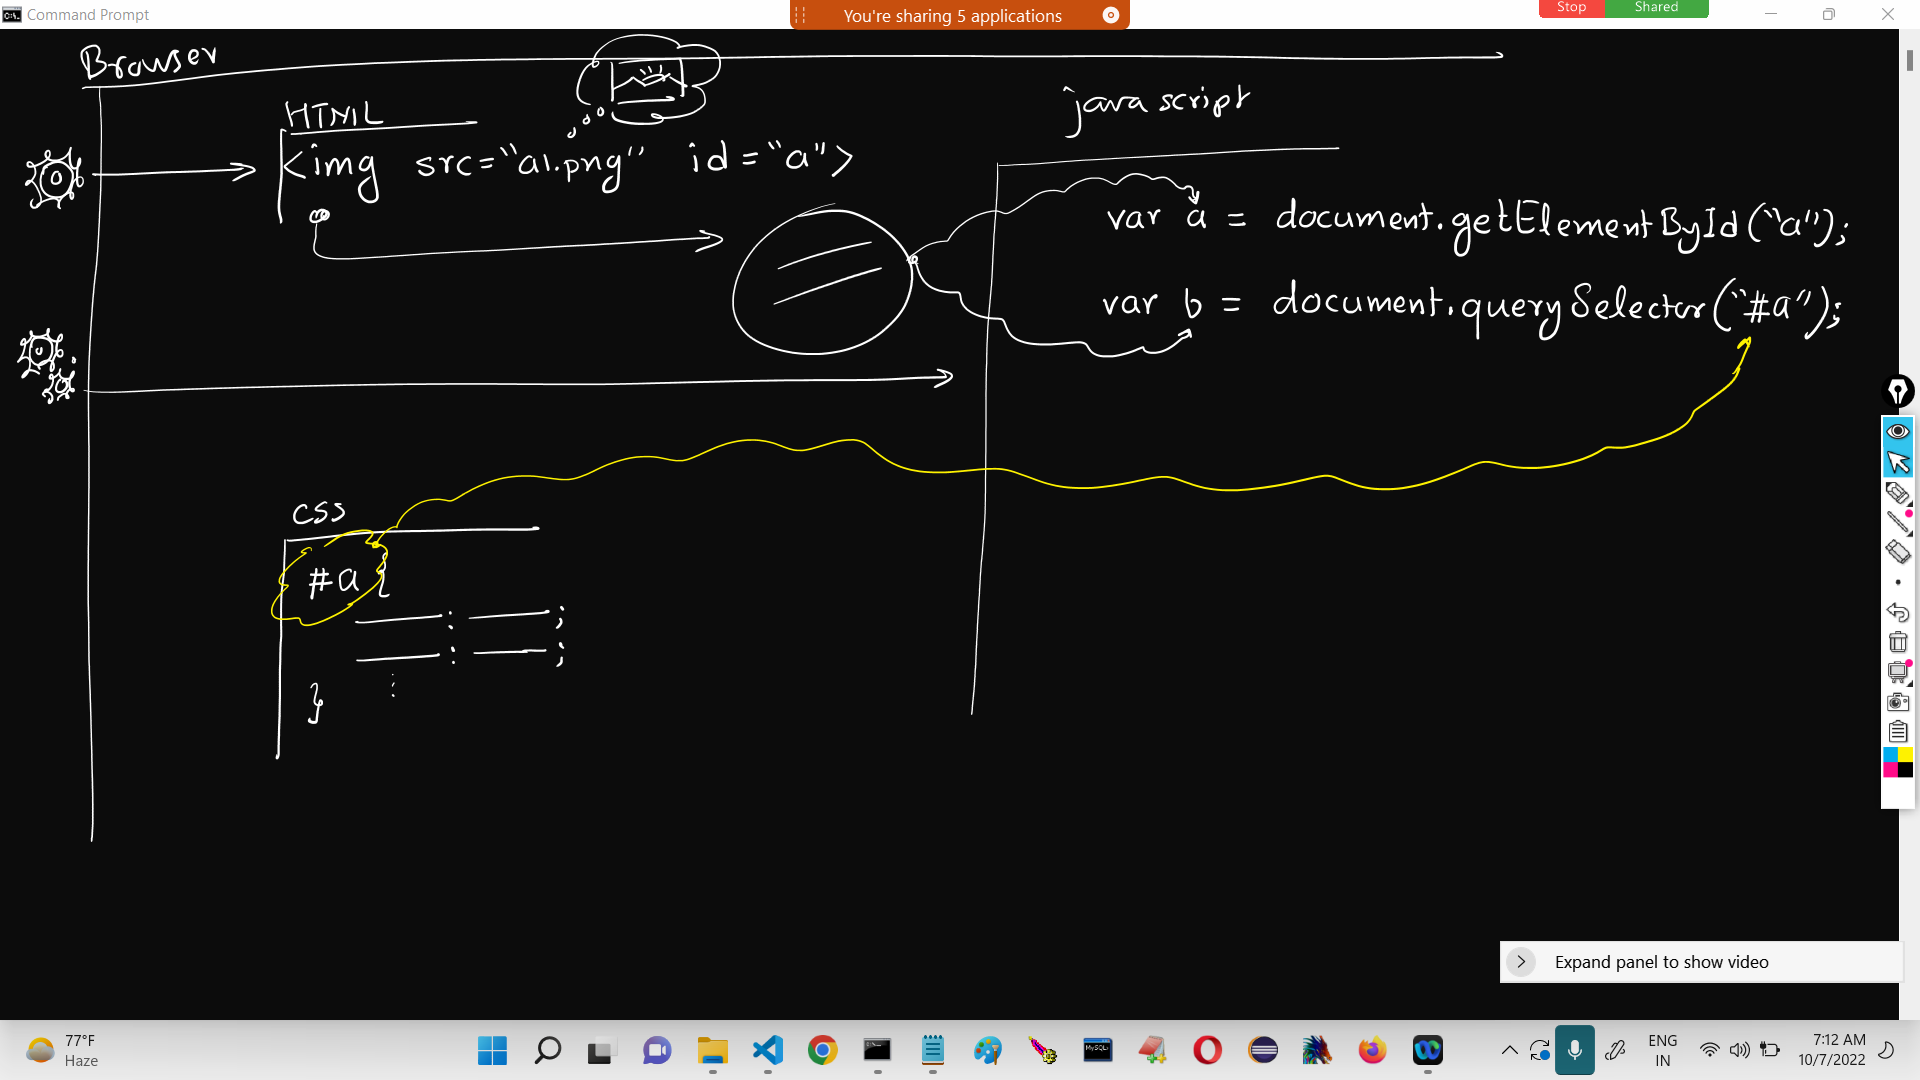 Command Prompt
You're sharing 5 applications
Stop
Shared
Browser
HTML
java script
<img src="a1.png" id="a">
var a = document.getElementById("a");
var b = document.querySelector("#a");
css
#a {
: ;
: ;
}
Expand panel to show video
77°F
Haze
MySQL
ENG
IN
7:12 AM
10/7/2022